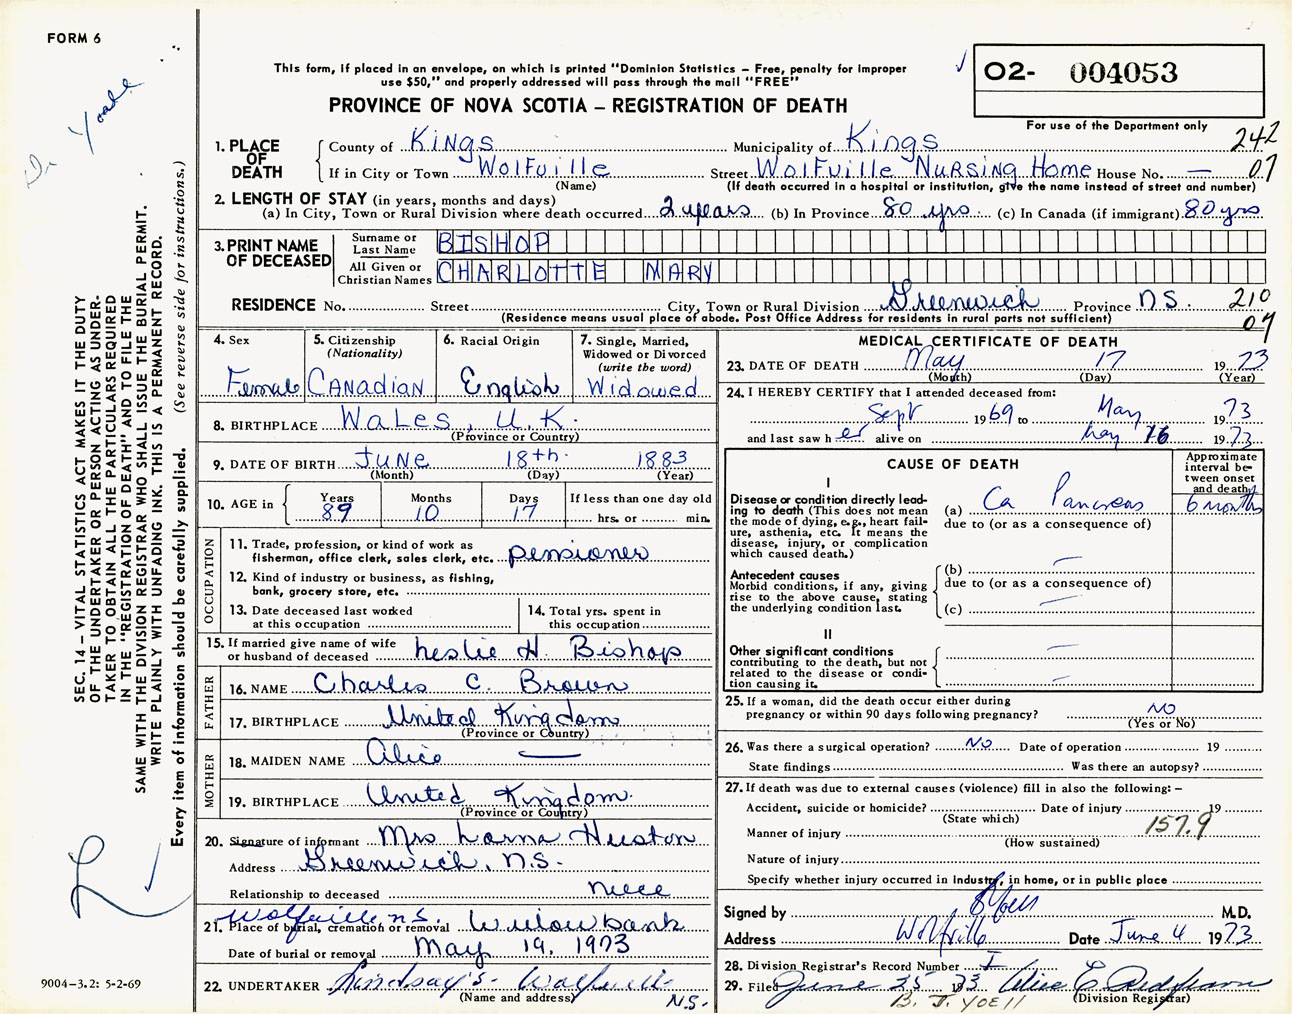 FORM 6
Dr Yoell
This form, if placed in an envelope, on which is printed "Dominion Statistics – Free, penalty for improper
use $50," and properly addressed will pass through the mail "FREE"
PROVINCE OF NOVA SCOTIA – REGISTRATION OF DEATH
02- 004053
For use of the Department only
1. PLACE OF DEATH County of Kings Municipality of Kings 242
If in City or Town Wolfville Street Wolfville Nursing Home House No. — 07
(Name) (If death occurred in a hospital or institution, give the name instead of street and number)
2. LENGTH OF STAY (in years, months and days)
(a) In City, Town or Rural Division where death occurred 2 years (b) In Province 80 yrs (c) In Canada (if immigrant) 80 yrs
3. PRINT NAME OF DECEASED Surname or Last Name BISHOP
All Given or Christian Names CHARLOTTE MARY
RESIDENCE No. Street City, Town or Rural Division Greenwich Province N.S. 210
(Residence means usual place of abode. Post Office Address for residents in rural parts not sufficient) 07
4. Sex Female
5. Citizenship (Nationality) Canadian
6. Racial Origin English
7. Single, Married, Widowed or Divorced (write the word) Widowed
8. BIRTHPLACE Wales, U.K.
(Province or Country)
9. DATE OF BIRTH June 18th 1883
(Month) (Day) (Year)
10. AGE in Years 89 Months 10 Days 17 If less than one day old hrs. or min.
OCCUPATION
11. Trade, profession, or kind of work as
fisherman, office clerk, sales clerk, etc. pensioner
12. Kind of industry or business, as fishing,
bank, grocery store, etc.
13. Date deceased last worked
at this occupation
14. Total yrs. spent in
this occupation
15. If married give name of wife
or husband of deceased Leslie H. Bishop
FATHER
16. NAME Charles C. Brown
17. BIRTHPLACE United Kingdom
(Province or Country)
MOTHER
18. MAIDEN NAME Alice —
19. BIRTHPLACE United Kingdom.
(Province or Country)
20. Signature of informant Mrs Lorna Huston
Address Greenwich, N.S.
Relationship to deceased niece
Wolfville, N.S.
21. Place of burial, cremation or removal Willowbank
Date of burial or removal May 19, 1973
22. UNDERTAKER Lindsay's Wolfville
(Name and address) N.S.
MEDICAL CERTIFICATE OF DEATH
23. DATE OF DEATH May 17 1973
(Month) (Day) (Year)
24. I HEREBY CERTIFY that I attended deceased from:
Sept 1969 to May 1973
and last saw her alive on May 16 1973
CAUSE OF DEATH
Approximate interval between onset and death
I
Disease or condition directly leading to death (This does not mean
the mode of dying, e.g., heart failure, asthenia, etc. It means the
disease, injury, or complication
which caused death.)
(a) Ca Pancreas 6 months
due to (or as a consequence of)
Antecedent causes
Morbid conditions, if any, giving
rise to the above cause, stating
the underlying condition last.
(b) —
due to (or as a consequence of)
(c) —
II
Other significant conditions
contributing to the death, but not
related to the disease or condition causing it.
25. If a woman, did the death occur either during
pregnancy or within 90 days following pregnancy? NO
(Yes or No)
26. Was there a surgical operation? No Date of operation 19
State findings Was there an autopsy?
27. If death was due to external causes (violence) fill in also the following: –
Accident, suicide or homicide? Date of injury 19
(State which)
Manner of injury 157.9
(How sustained)
Nature of injury
Specify whether injury occurred in industry, in home, or in public place
Signed by BYoell M.D.
Address Wolfville Date June 4 1973
28. Division Registrar's Record Number
29. Filed June 25 1973
(Division Registrar)
B. J. YOEll
SEC. 14 – VITAL STATISTICS ACT MAKES IT THE DUTY
OF THE UNDERTAKER OR PERSON ACTING AS UNDER-
TAKER TO OBTAIN ALL THE PARTICULARS REQUIRED
IN THE "REGISTRATION OF DEATH" AND TO FILE THE
SAME WITH THE DIVISION REGISTRAR WHO SHALL ISSUE THE BURIAL PERMIT.
WRITE PLAINLY WITH UNFADING INK. THIS IS A PERMANENT RECORD.
Every item of information should be carefully supplied. (See reverse side for instructions.)
9004–3.2: 5-2-69